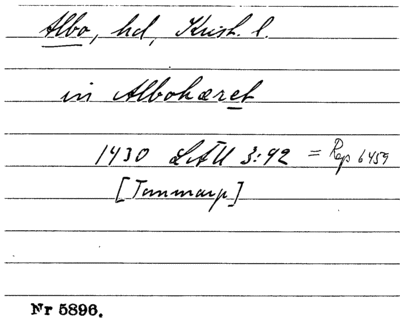 Albo, hd, Krist. l.
in Albohæret
1430 LÄU 3:92 = Rep 6459
[Tommarp]
Nr 5896.